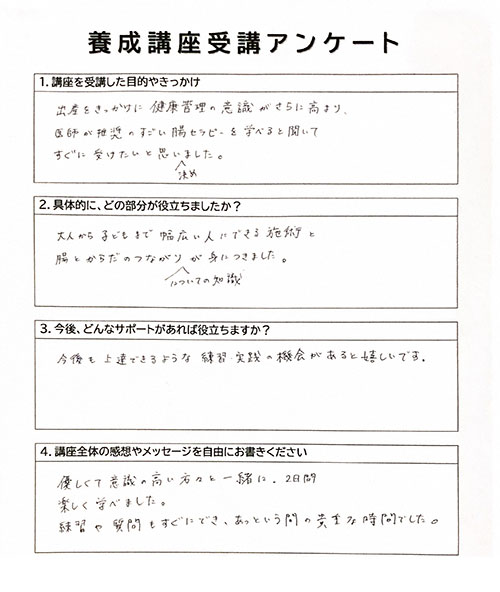 養成講座受講アンケート
1. 講座を受講した目的やきっかけ
出産をきっかけに 健康管理の意識がさらに高まり、
医師が推奨のすごい腸セラピーを学べると聞いて
すぐに受けたいと思いました。
決め
2. 具体的に、どの部分が役立ちましたか?
大人から子どもまで幅広い人にできる施術と
腸とからだのつながりが身につきました。
についての知識
3. 今後、どんなサポートがあれば役立ちますか?
今後も上達できるような練習・実践の機会があると嬉しいです。
4. 講座全体の感想やメッセージを自由にお書きください
優しくて意識の高い方々と一緒に、2日間
楽しく学べました。
練習や質問もすぐにでき、あっという間の貴重な時間でした。